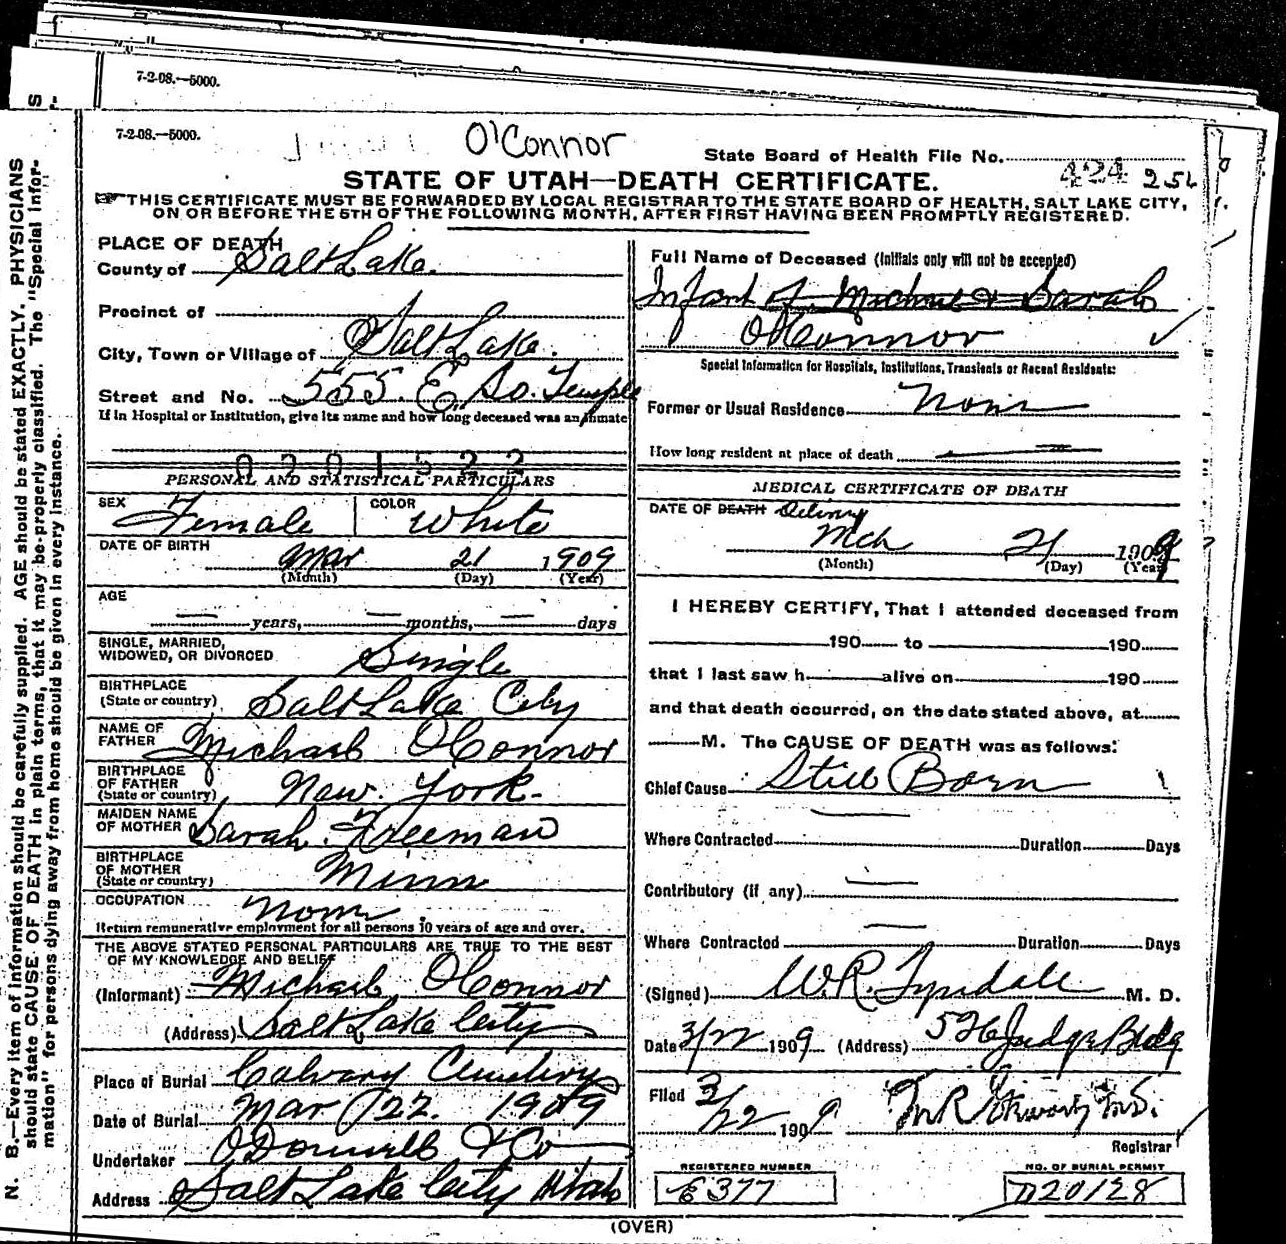 7-2-08.—5000.
7-2-08.—5000.
O'Connor
State Board of Health File No. 424 25
STATE OF UTAH—DEATH CERTIFICATE.
THIS CERTIFICATE MUST BE FORWARDED BY LOCAL REGISTRAR TO THE STATE BOARD OF HEALTH, SALT LAKE CITY,
ON OR BEFORE THE 5TH OF THE FOLLOWING MONTH, AFTER FIRST HAVING BEEN PROMPTLY REGISTERED.
PLACE OF DEATH
County of Salt Lake.
Precinct of
City, Town or Village of Salt Lake.
Street and No. 555. E. So. Temple
If in Hospital or Institution, give its name and how long deceased was an inmate
0201522
PERSONAL AND STATISTICAL PARTICULARS
SEX Female COLOR White
DATE OF BIRTH Mar 21 1909
(Month) (Day) (Year)
AGE
— years, — months, — days
SINGLE, MARRIED,
WIDOWED, OR DIVORCED Single
BIRTHPLACE
(State or country) Salt Lake City
NAME OF
FATHER Michael O'Connor
BIRTHPLACE
OF FATHER
(State or country) New York.
MAIDEN NAME
OF MOTHER Sarah. Freeman
BIRTHPLACE
OF MOTHER
(State or country) Minn
OCCUPATION None
Return remunerative employment for all persons 10 years of age and over.
THE ABOVE STATED PERSONAL PARTICULARS ARE TRUE TO THE BEST
OF MY KNOWLEDGE AND BELIEF
(Informant) Michael O'Connor
(Address) Salt Lake City
Place of Burial Calvary Cemetery
Date of Burial Mar 22. 1909
Undertaker O'Donnell & Co
Address Salt Lake City Utah
Full Name of Deceased (Initials only will not be accepted)
Infant of Michael & Sarah
O'Connor ✓
Special Information for Hospitals, Institutions, Transients or Recent Residents:
Former or Usual Residence None
How long resident at place of death
MEDICAL CERTIFICATE OF DEATH
DATE OF DEATH Delivery
Mch 21 1909
(Month) (Day) (Year)
I HEREBY CERTIFY, That I attended deceased from
190 to 190
that I last saw h alive on 190
and that death occurred, on the date stated above, at
M. The CAUSE OF DEATH was as follows:
Chief Cause Still Born
Where Contracted Duration Days
Contributory (if any)
Where Contracted Duration Days
(Signed) W. R. Tyndale M. D.
Date 3/22 1909 (Address) 526 Judge Bldg
Filed 3/22 1909
Registrar
REGISTERED NUMBER
E377
NO. OF BURIAL PERMIT
D20128
(OVER)
N. B.—Every item of information should be carefully supplied. AGE should be stated EXACTLY. PHYSICIANS
should state CAUSE OF DEATH in plain terms, that it may be properly classified. The "Special Infor-
mation" for persons dying away from home should be given in every instance.